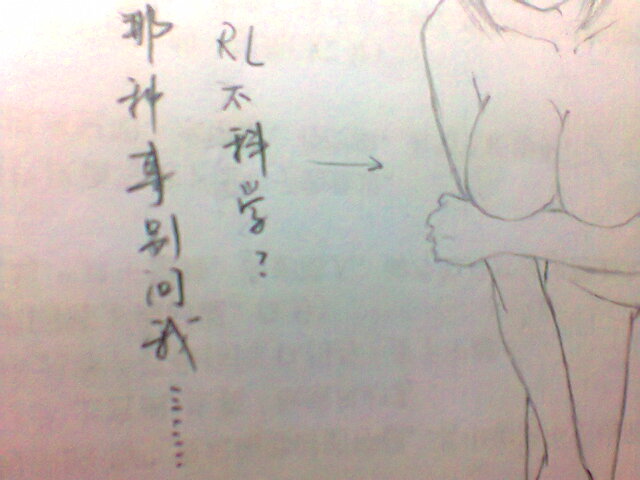 RL不科学?
那种事别问我………